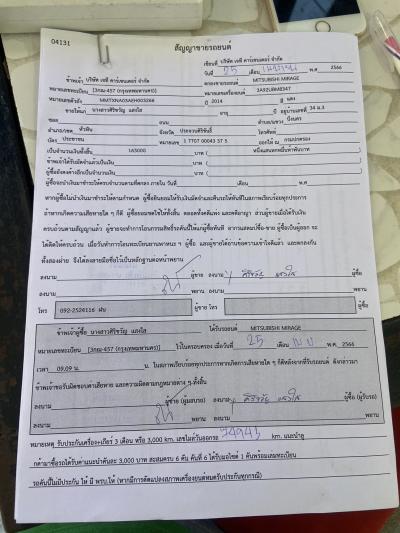 04131
สัญญาขายรถยนต์
เขียนที่ บริษัท เจที คาร์เซนเตอร์ จำกัด
วันที่ 25 เดือน เมษายน พ.ศ 2566
ข้าพเจ้า บริษัท เจที คาร์เซนเตอร์ จำกัด ตกลงขายรถยนต์ MITSUBISHI MIRAGE
หมายเลขทะเบียน [3กฌ-457 (กรุงเทพมหานคร)] หมายเลขเครื่องยนต์ 3A92UBM8347
หมายเลขตัวถัง ปี 2014 สี แดง
ขายให้แก่ นางสาวศิริขวัญ แสงใส อายุ ปี อยู่บ้านเลขที่ 34 ม.3
ซอย ถนน ตำบล/แขวง บึงนคร
อำเภอ/เขต หัวหิน จังหวัด ประจวบคีรีขันธ์ โทรศัพท์
บัตร ประชาชน หมายเลข 1 7707 00043 37 5 ออกให้ ณ กรมปกครอง
เป็นจำนวนเงินทั้งสิ้น 163000 บาท ( หนึ่งแสนหกหมื่นสามพันบาท
ข้าพเจ้าได้รับมัดจำแล้วเป็นเงิน บาท (
ผู้ซื้อยังคงค้างอีกเป็นจำนวนเงิน บาท (
ผู้ซื้อจะนำเงินมาชำระให้ครบจำนวนตามที่ตกลง ภายใน วันที่ เดือน พ.ศ
หากผู้ซื้อไม่นำเงินมาชำระให้ตามกำหนด ผู้ซื้อยินยอมให้ริบเงินมัดจำและคืนรถให้ทันทีในสภาพเรียบร้อยทุกประการ
ถ้าหากเกิดความเสียหายใด ๆ ก็ดี ผู้ซื้อยอมชดใช้ให้ทั้งสิ้น ตลอดทั้งคดีแพ่ง และคดีอาญา ส่วนผู้ขายเมื่อได้รับเงิน
ครบถ้วนตามสัญญาแล้ว ผู้ขายจะทำการโอนกรรมสิทธิ์รถคันนี้ให้แก่ผู้ซื้อทันที
ทั้งสองฝ่าย จึงได้ลงลายมือชื่อไว้เป็นหลักฐานต่อหน้าพยาน
ลงนาม ผู้ขาย ลงนาม ศิริขวัญ แสงใส ผู้ซื้อ
ลงนาม พยาน ลงนาม พยาน
โทร 092-2524116 ฝน ผู้ขาย โทร ผู้ซื้อ
ข้าพเจ้าผู้ซื้อ นางสาวศิริขวัญ แสงใส ได้รับรถยนต์ MITSUBISHI MIRAGE
หมายเลขทะเบียน [3กฌ-457 (กรุงเทพมหานคร)] ไว้ในครอบครอง เมื่อวันที่ 25 เดือน เม.ย พ.ศ 2566
เวลา 09.09 น. ในสภาพเรียบร้อยทุกประการหากเกิดการเสียหายใด ๆ ก็ดีหลังจากที่รับรถยนต์ ดังกล่าวมา
ข้าพเจ้าขอรับผิดชอบค่าเสียหาย และความผิดตามกฎหมายต่าง ๆ ทั้งสิ้น
ลงนาม ผู้ขาย (ผู้มอบรถ) ลงนาม ศิริขวัญ แสงใส ผู้ซื้อ (ผู้รับรถ)
ลงนาม พยาน ลงนาม พยาน
หมายเหตุ รับประกันเครื่อง+เกียร์ 3 เดือน หรือ 3,000 km. เลขไมล์วันออกรถ 74943 km. แนะนำลูก
กค้ามาซื้อรถได้รับค่าแนะนำคันละ 3,000 บาท สะสมครบ 6 คัน คันที่ 6 ได้รับมอไซค์ 1 คันพร้อมเล่มทะเบียน
รถคันนี้ไม่มีประกัน ให้ มี พรบ.ให้ (หากมีการดัดแปลงสภาพเครื่องยนต์หมดรับประกันทุกกรณี)